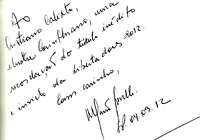 Ao
Cristiano Calixto, uma
ilustre Corinthiano, uma
recordação do título inédito
e invicto da Libertadores 2012.
Com carinho,
SP 04.09.12